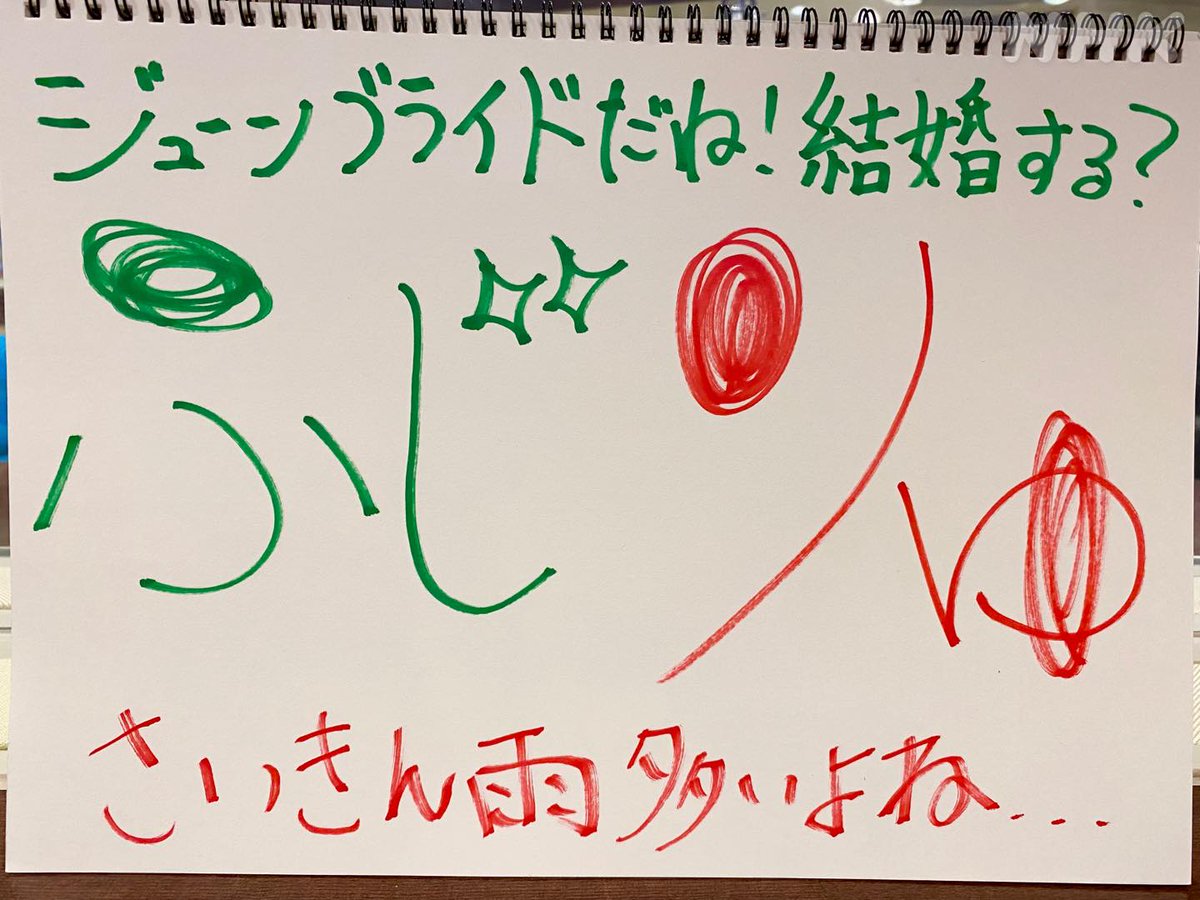 ジューンブライドだね！結婚する？
ふじりゆ
さいきん雨多いよね...